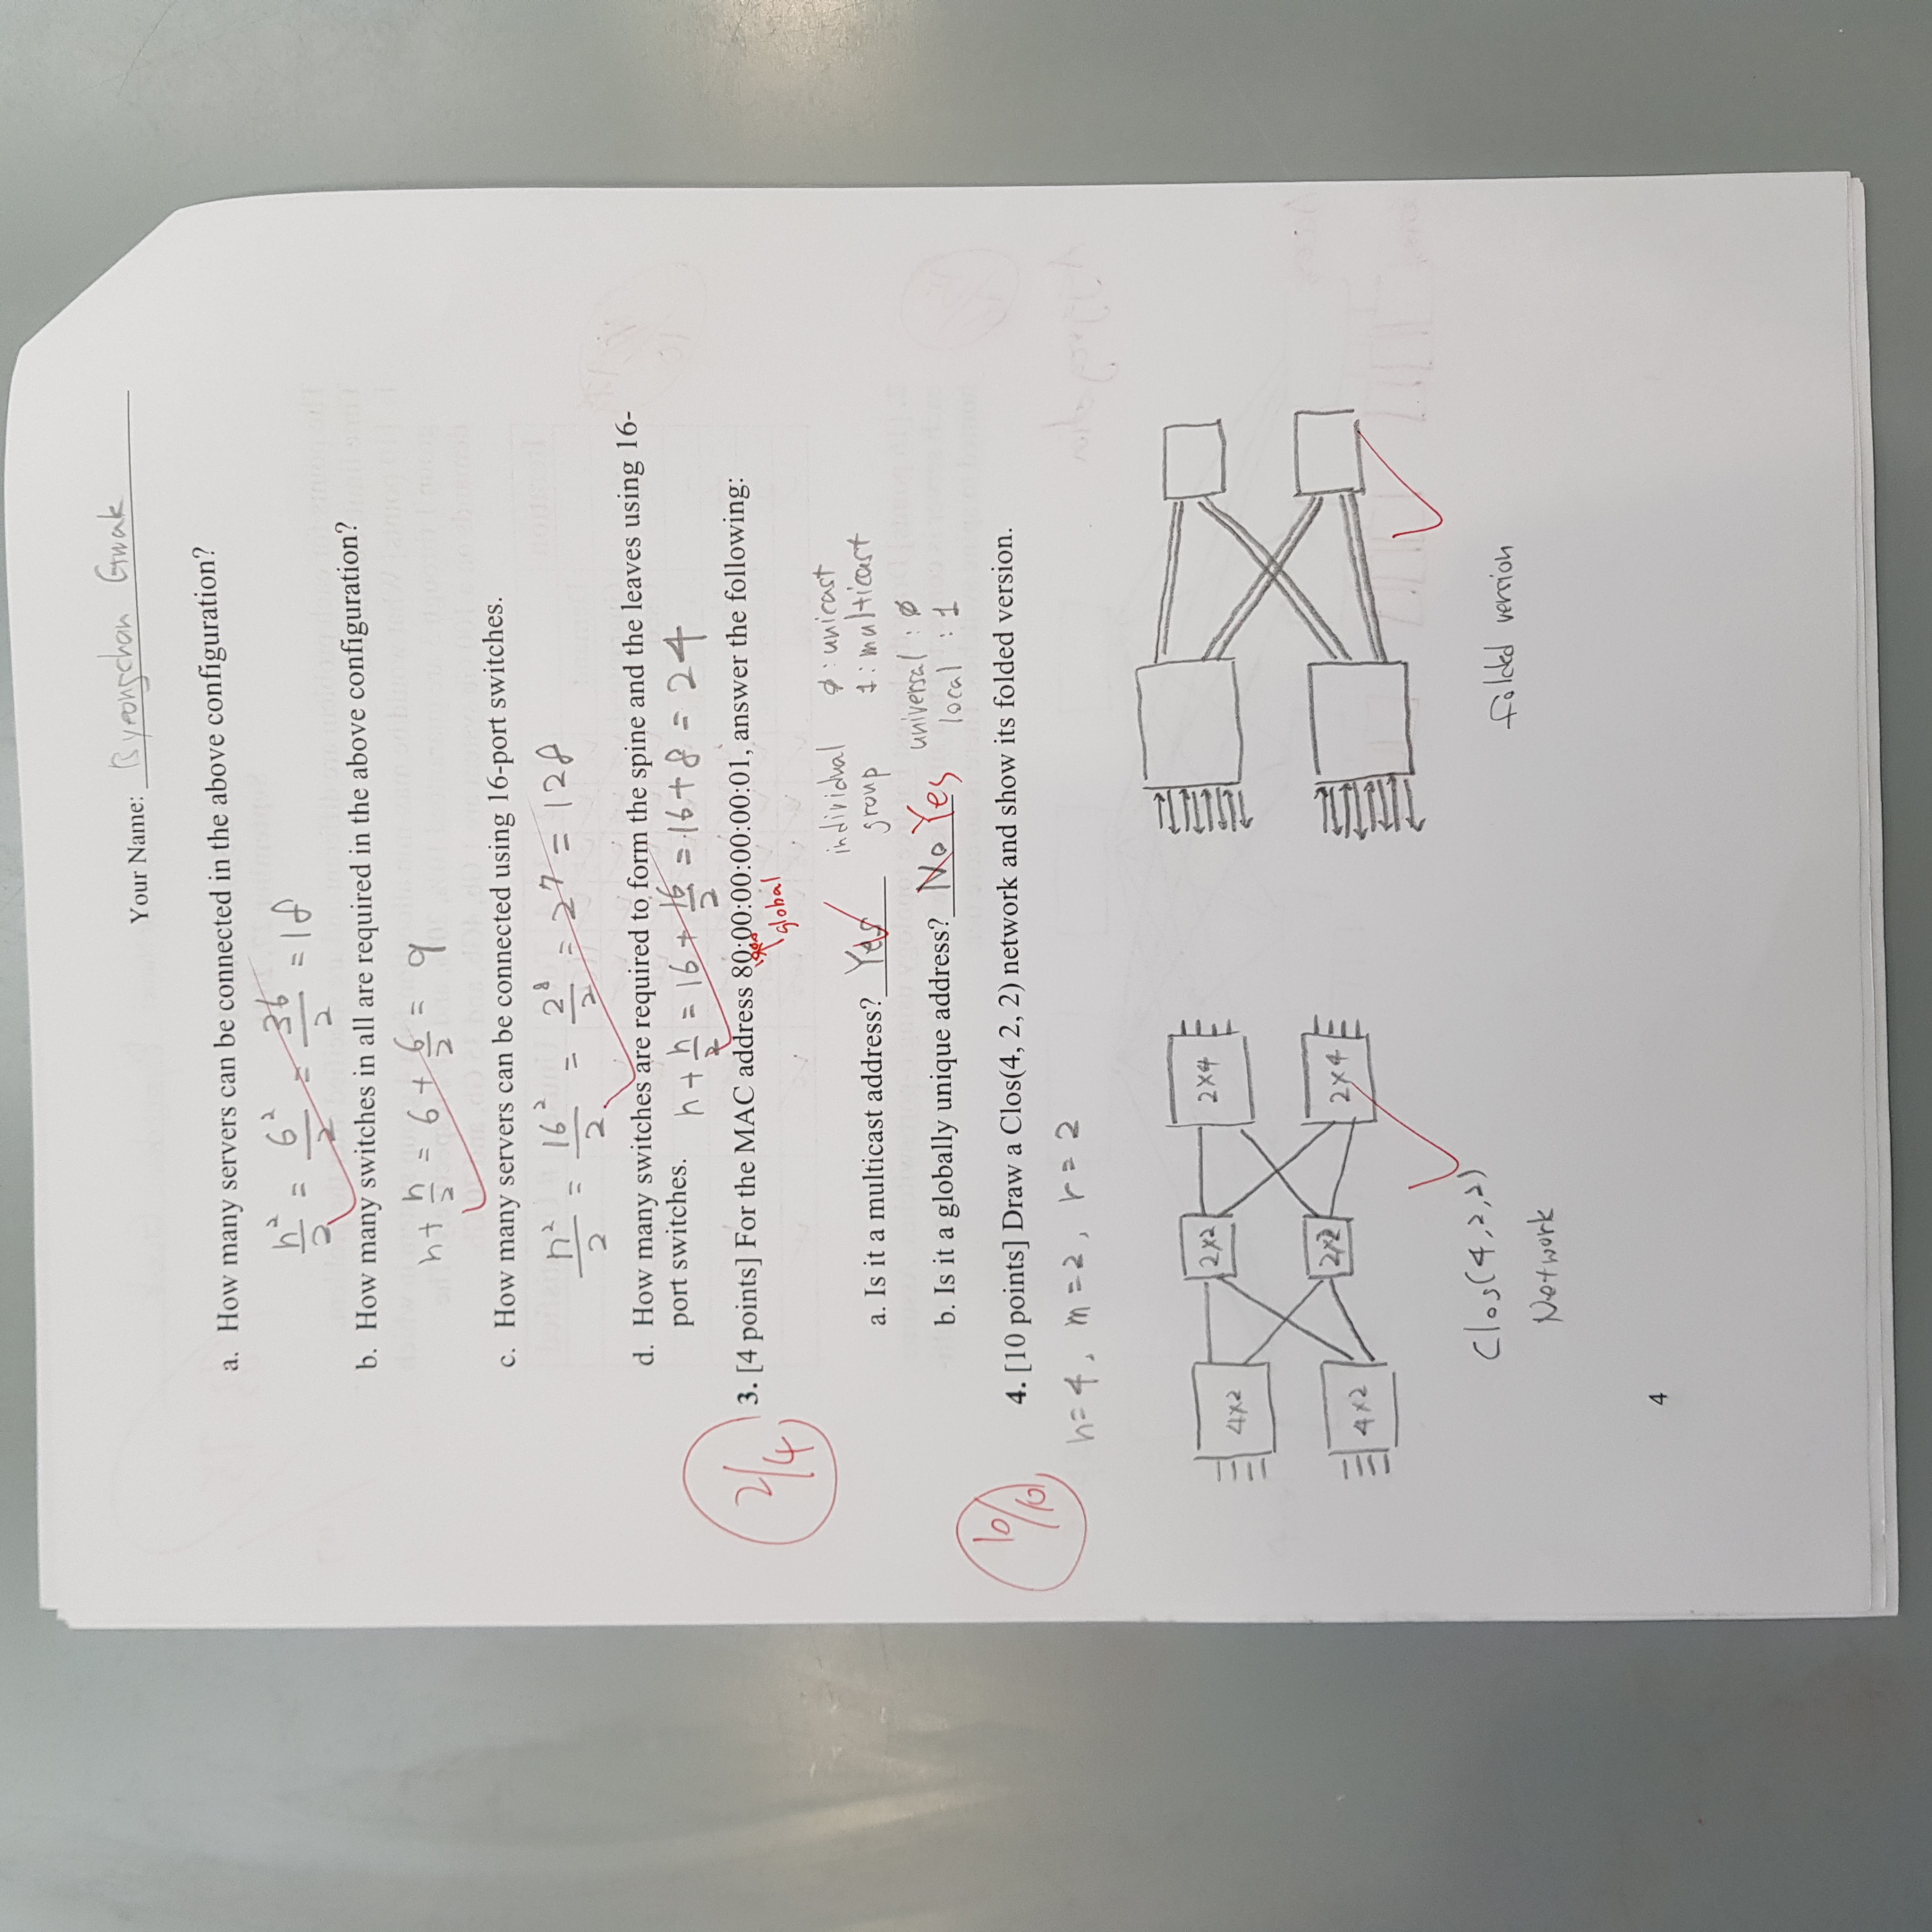 Your Name: Byeongchan Gwak
a. How many servers can be connected in the above configuration?
n²/2 = 6²/2 = 36/2 = 18
b. How many switches in all are required in the above configuration?
n + n/2 = 6 + 6/2 = 9
c. How many servers can be connected using 16-port switches.
n²/2 = 16²/2 = 2⁸/2 = 2⁷ = 128
d. How many switches are required to form the spine and the leaves using 16-
port switches. n + n/2 = 16 + 16/2 = 16 + 8 = 24
2/4
3. [4 points] For the MAC address 80:00:00:00:00:01, answer the following:
global
a. Is it a multicast address? Yes individual group 0: unicast 1: multicast
b. Is it a globally unique address? No Yes universal : 0 local : 1
10/10
4. [10 points] Draw a Clos(4, 2, 2) network and show its folded version.
n=4, m=2, r=2
4x2 2x2 2x4
4x2 2x2 2x4
Clos(4,2,2)
Network
folded version
4